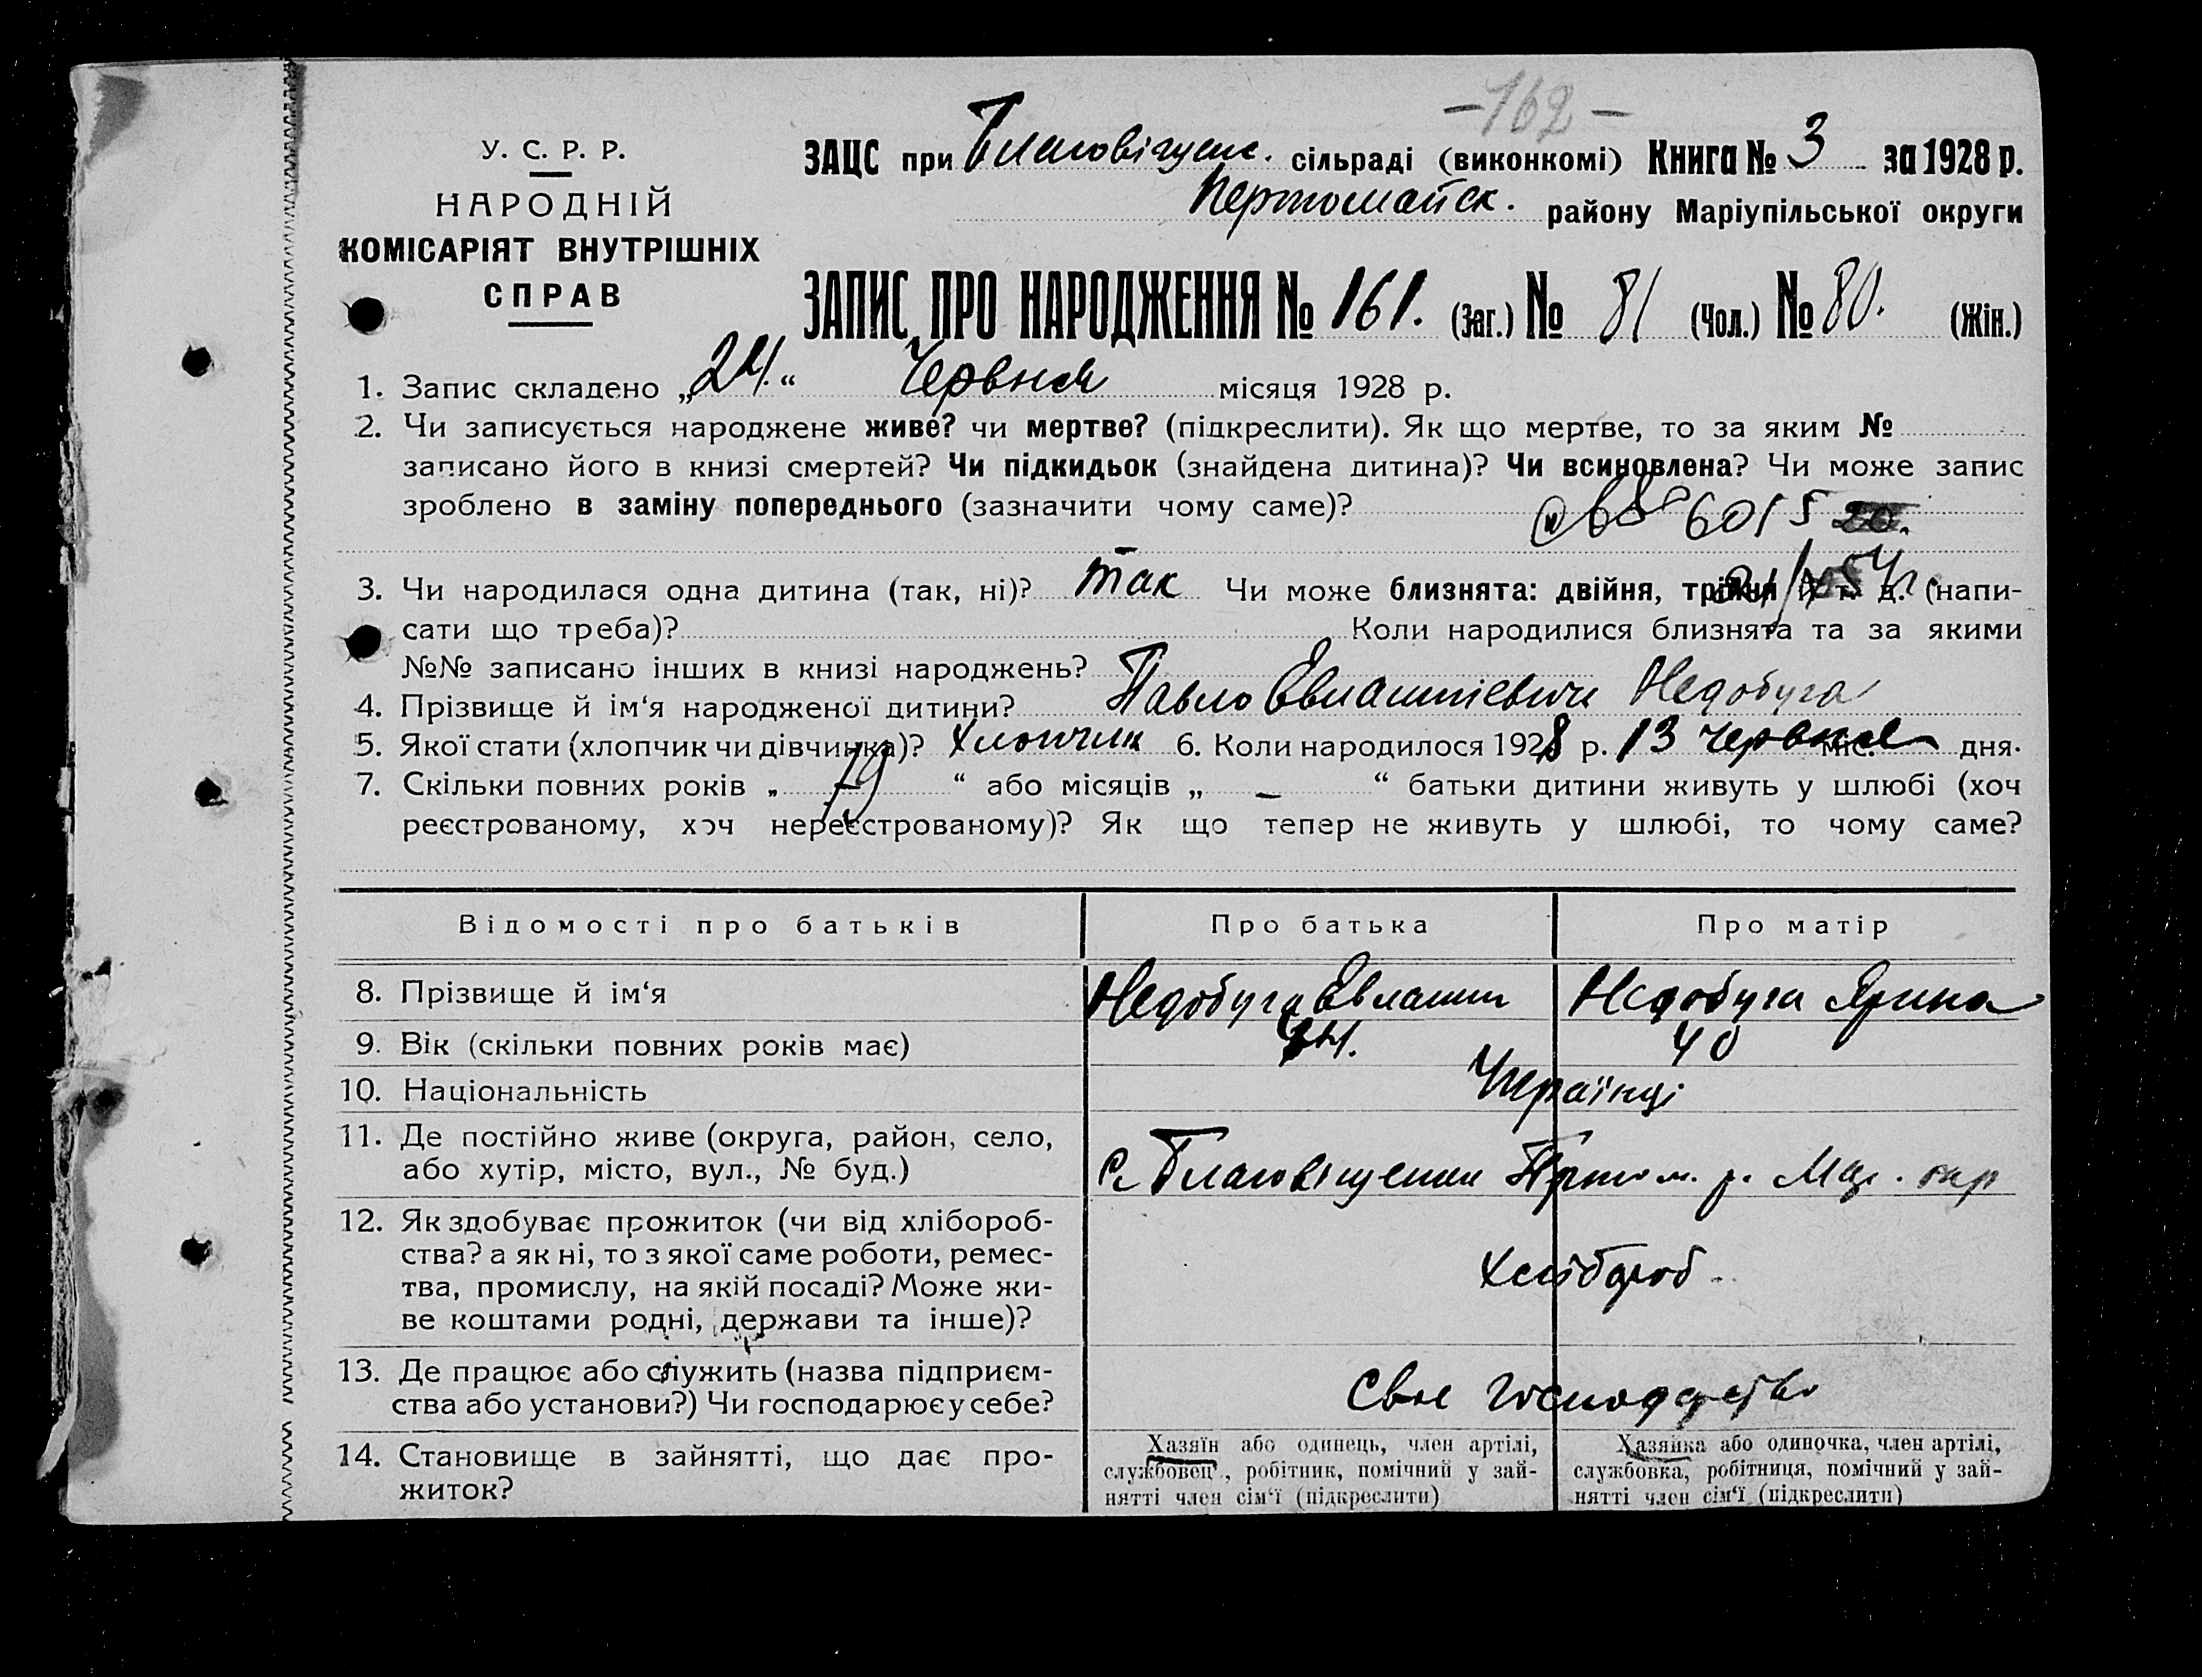 -162-
У. С. Р. Р.
НАРОДНІЙ
КОМІСАРІЯТ ВНУТРІШНІХ
СПРАВ
ЗАЦС при Благовіщенс. сільраді (виконкомі) Книга № 3 за 1928 р.
Першомайск. району Маріупільської округи
ЗАПИС ПРО НАРОДЖЕННЯ № 161. (Заг.) № 81 (Чол.) № 80. (Жін.)
1. Запис складено „24.“ Червня місяця 1928 р.
2. Чи записується народжене живе? чи мертве? (підкреслити). Як що мертве, то за яким №
записано його в книзі смертей? Чи підкидьок (знайдена дитина)? Чи всиновлена? Чи може запис
зроблено в заміну попереднього (зазначити чому саме)?
6015
3. Чи народилася одна дитина (так, ні)? так Чи може близнята: двійня, трійня й т. д. (напи-
сати що треба)? Коли народилися близнята та за якими
№№ записано інших в книзі народжень?
4. Прізвище й ім‘я народженої дитини? Павло Євлашпієвич Недобуга
5. Якої стати (хлопчик чи дівчинка)? Хлопчик 6. Коли народилося 1928 р. 13 червня міс. дня.
7. Скільки повних років „ 19 “ або місяців „ – “ батьки дитини живуть у шлюбі (хоч
реєстрованому, хоч нереєстрованому)? Як що тепер не живуть у шлюбі, то чому саме?
Відомості про батьків Про батька Про матір
8. Прізвище й ім‘я Недобуга Євлашп Недобуга Ярина
9. Вік (скільки повних років має) 44. 40
10. Національність Українці
11. Де постійно живе (округа, район, село,
або хутір, місто, вул., № буд.) с. Благовіщенки Пршом. р. Мар. окр
12. Як здобуває прожиток (чи від хлібороб-
ства? а як ні, то з якої саме роботи, ремес-
тва, промислу, на якій посаді? Може жи-
ве коштами родні, держави та інше)?
Хлібороб.
13. Де працює або служить (назва підприєм-
ства або установи?) Чи господарює у себе?
Своє господарство
14. Становище в зайнятті, що дає про-
житок?
Хазяїн або одинець, член артілі,
службовець, робітник, помічний у зай-
нятті член сім‘ї (підкреслити)
Хазяйка або одиночка, член артілі,
службовка, робітниця, помічний у зай-
нятті член сім‘ї (підкреслити)